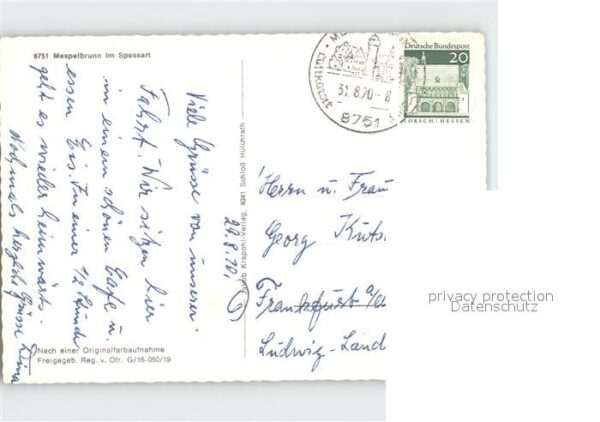 8751 Mespelbrunn im Spessart
29.8.70.
Viele Grüsse von unserer
Fahrt. Wir sitzen hier
in einem schönen Cafe u.
essen Eis. In einer 1/2 Stunde
geht es wieder heimwärts.
Nochmals herzliche Grüsse
Nach einer Originalfarbaufnahme
Freigegeb. Reg. v. Ofr. G/16-050/19
Krapohl-Verlag, 4041 Schloß Hülchrath
Luftkurort
31.8.70-8
8751
Deutsche Bundespost
20
LORSCH/HESSEN
Herrn u. Frau
Georg
Frankfurt a/
Ludwig-Land
privacy protection
Datenschutz